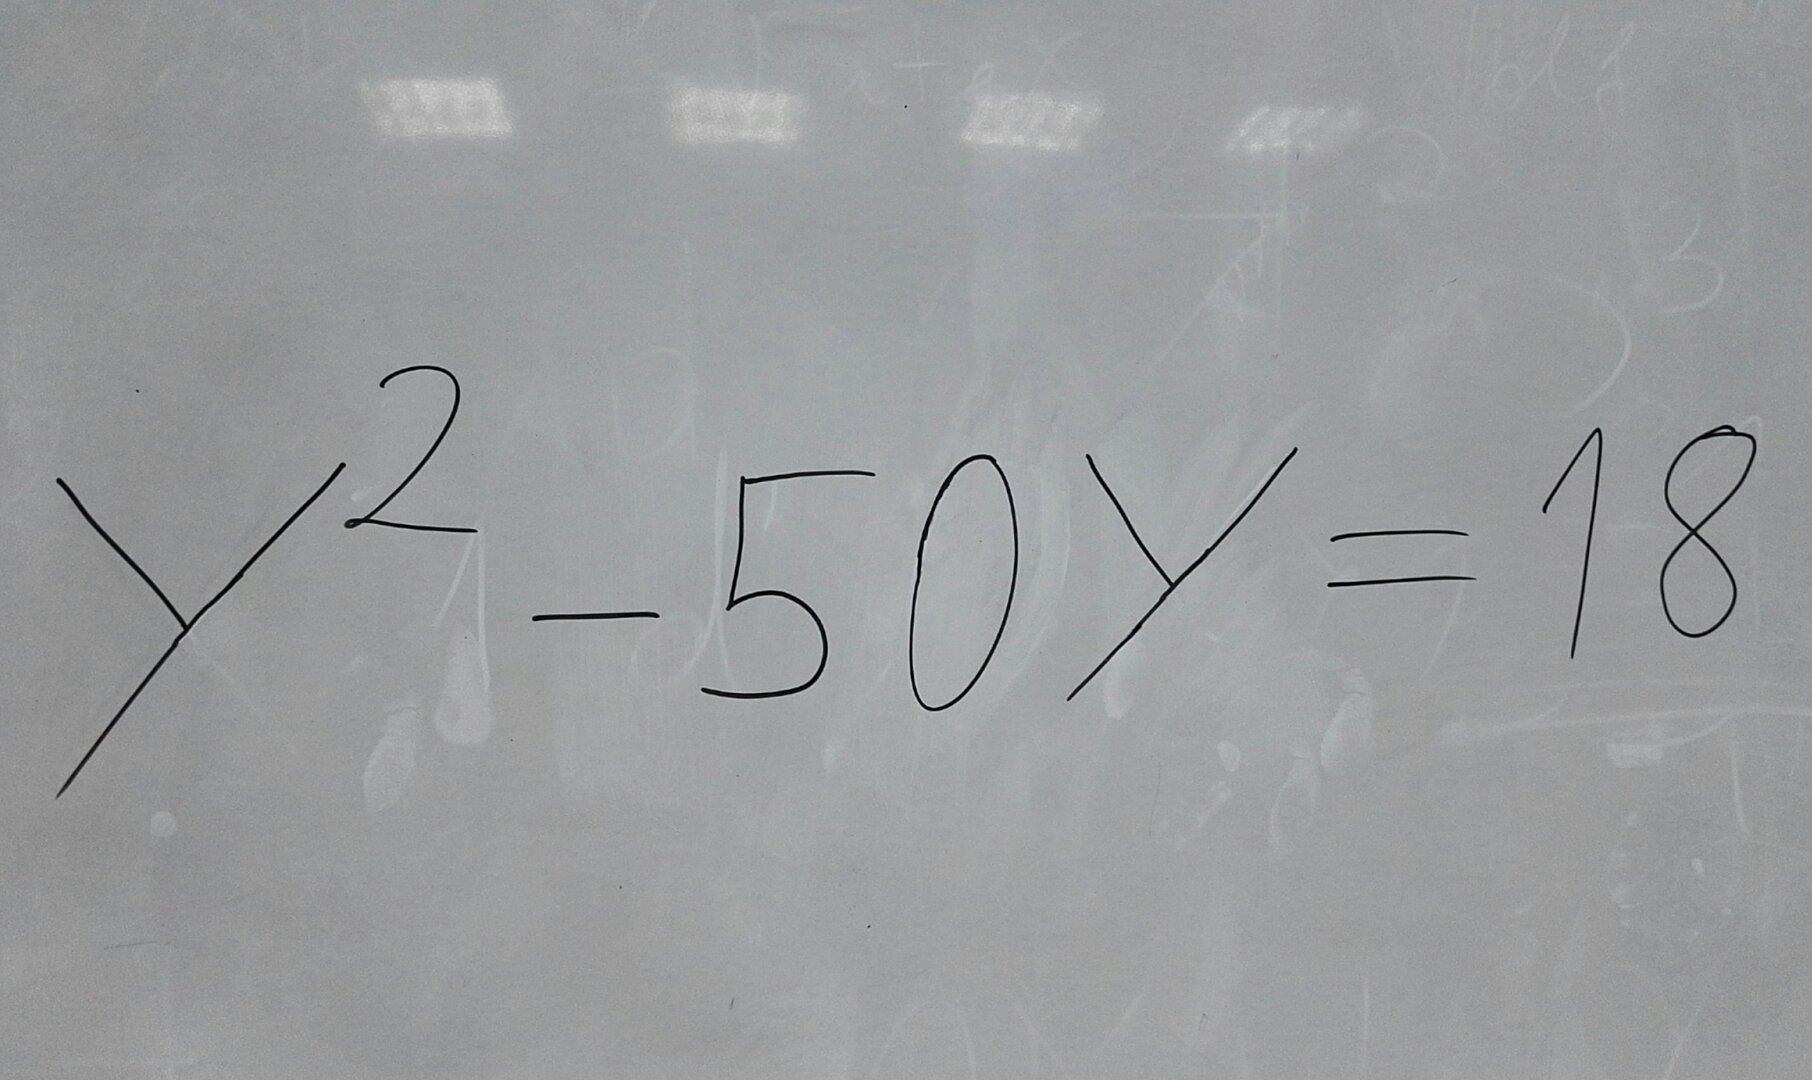 y² - 50y = 18